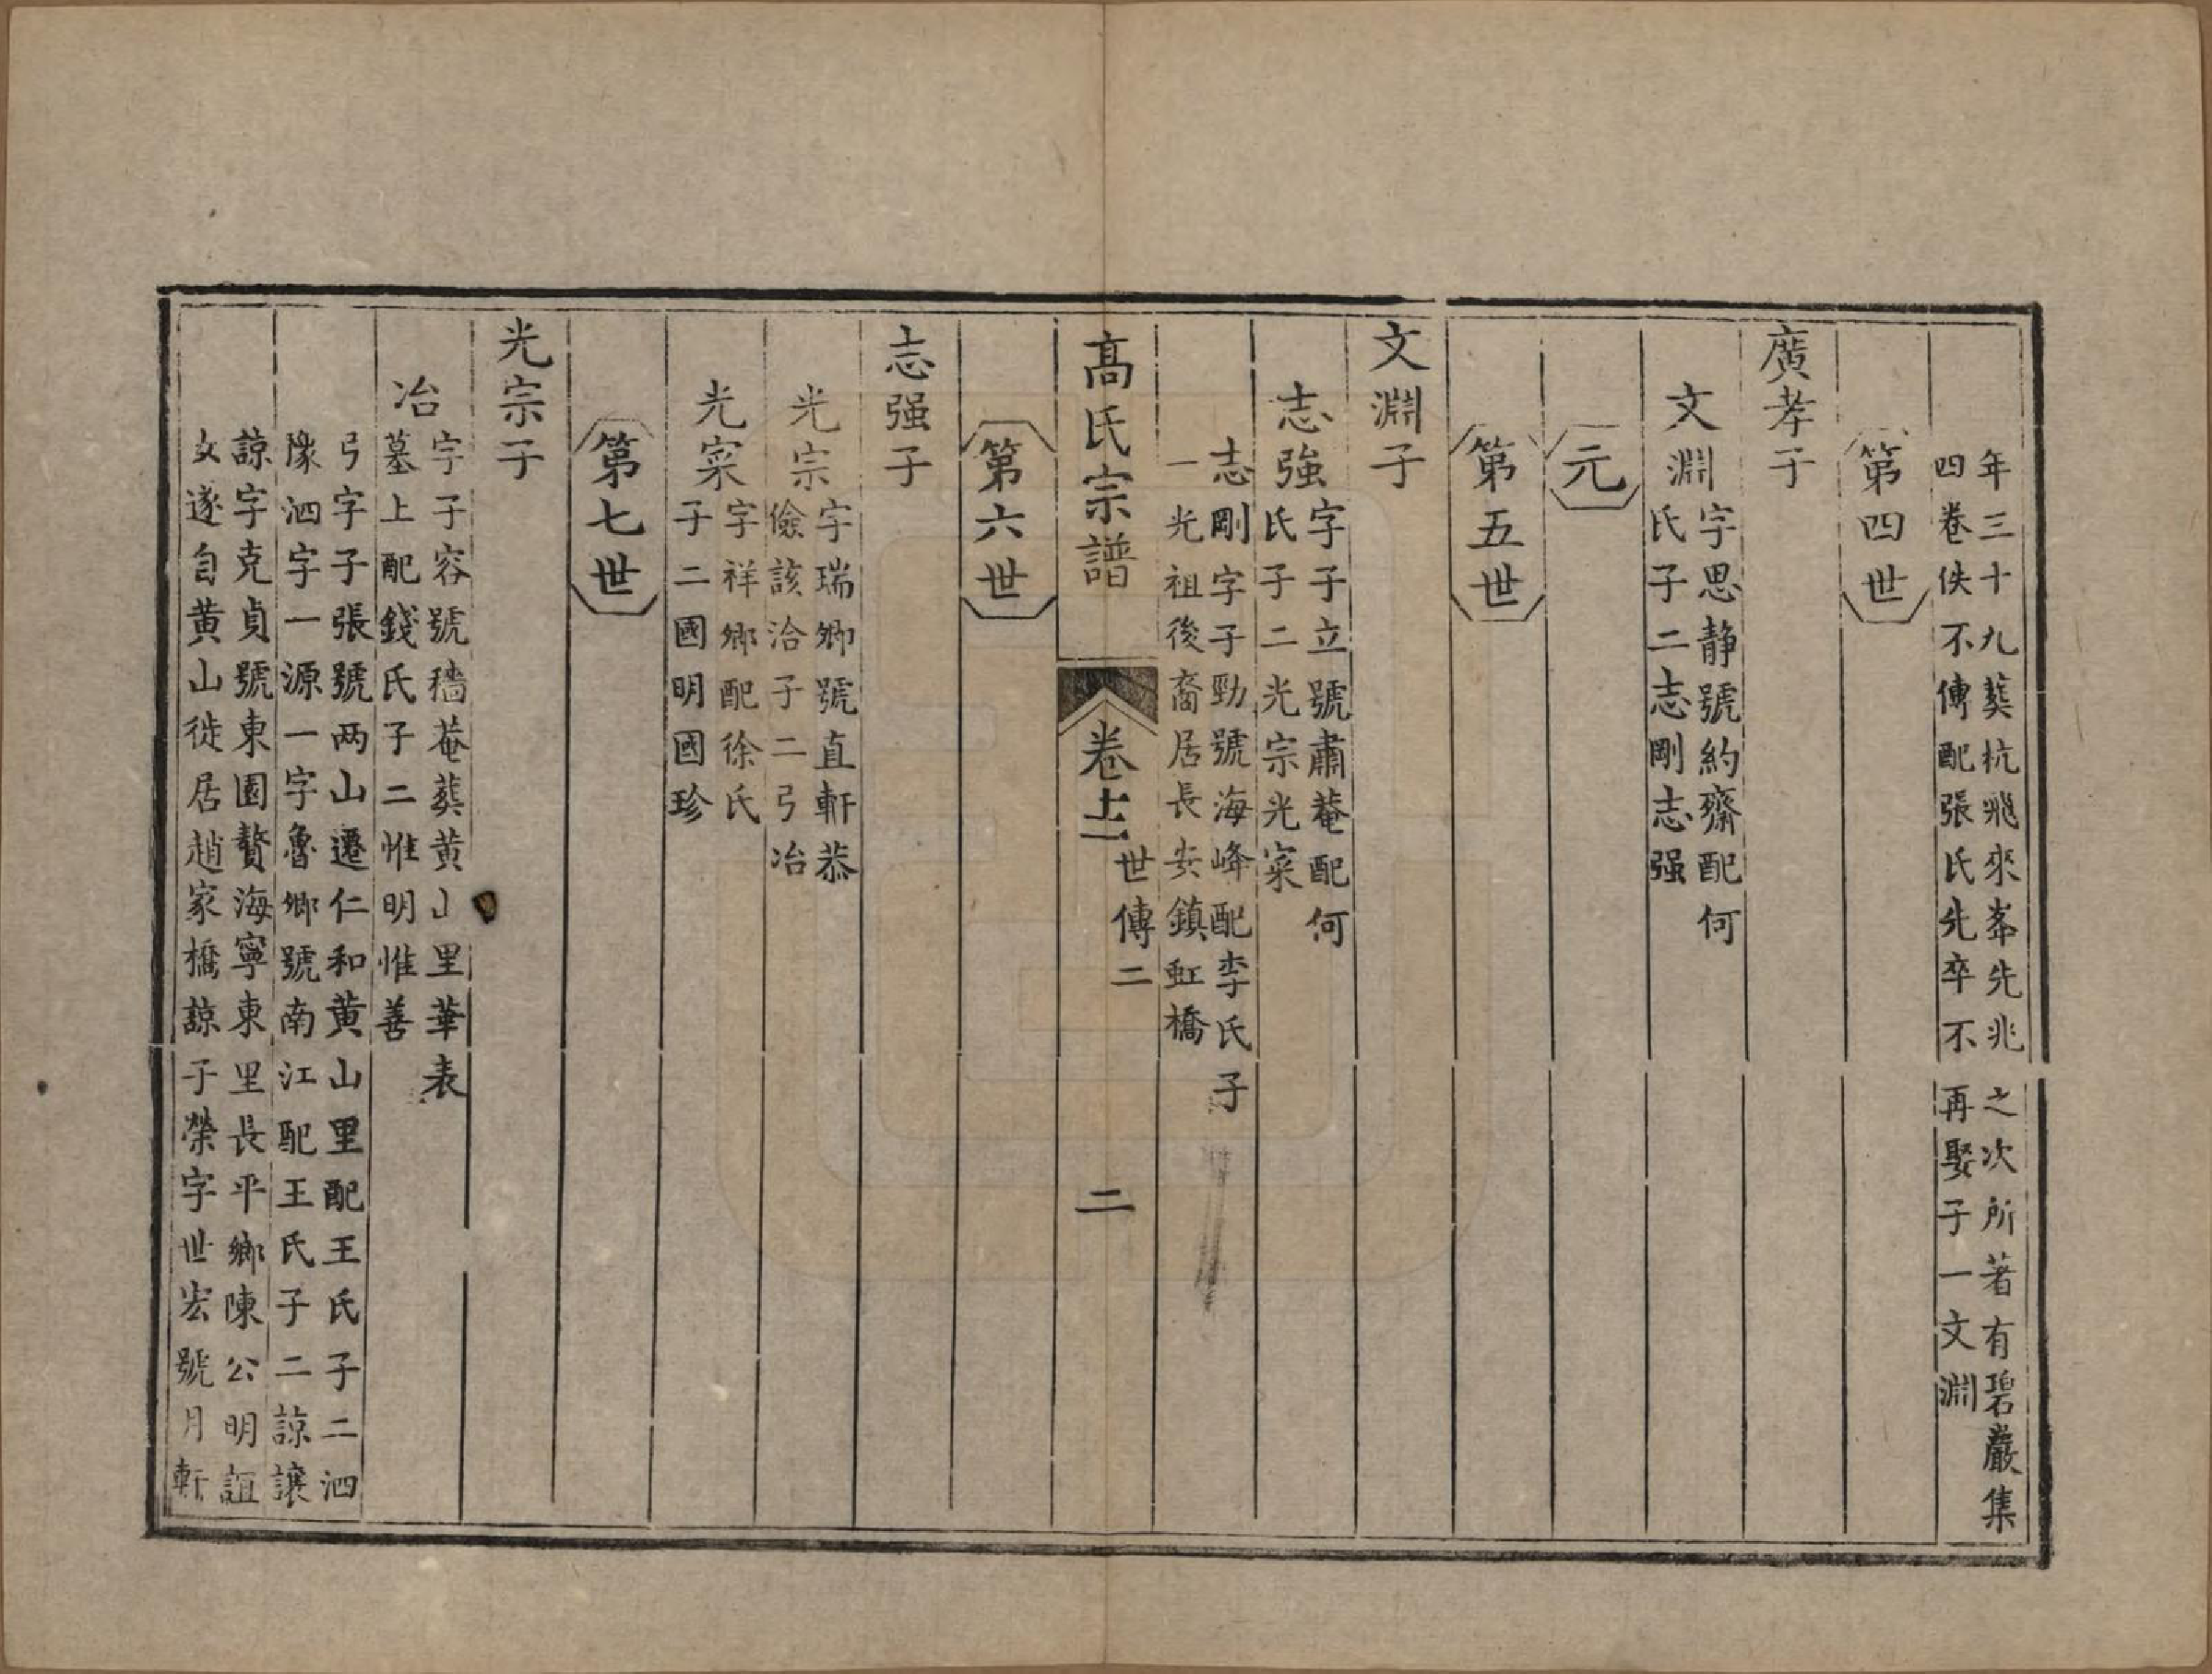 年三十九葬杭飛來峯先兆之次所著有碧巖集
四卷佚不傳配張氏先卒不再娶子一文淵
第四世
廣孝子
文淵
字思静號約齋配何
氏子二志剛志强
元
第五世
文淵子
志強
字子立號肅菴配何
氏子二光宗光寀
志剛字子勁號海峰配李氏子
一光祖後裔居長安鎮虹橋
高氏宗譜
卷十二
世傳二
二
第六世
志强子
光宗
字瑞卿號直軒恭
儉該洽子二弓冶
光寀
字祥鄉配徐氏
子二國明國珍
第七世
光宗子
冶
字子容號穡菴葬黄山里華表
墓上配錢氏子二惟明惟善
弓字子張號两山遷仁和黄山里配王氏子二泗
豫泗字一源一字魯鄉號南江配王氏子二諒讓
諒字克貞號東園贅海寧東里長平鄉陳公明誼
女遂自黄山徙居趙家橋諒子榮字世宏號月軒